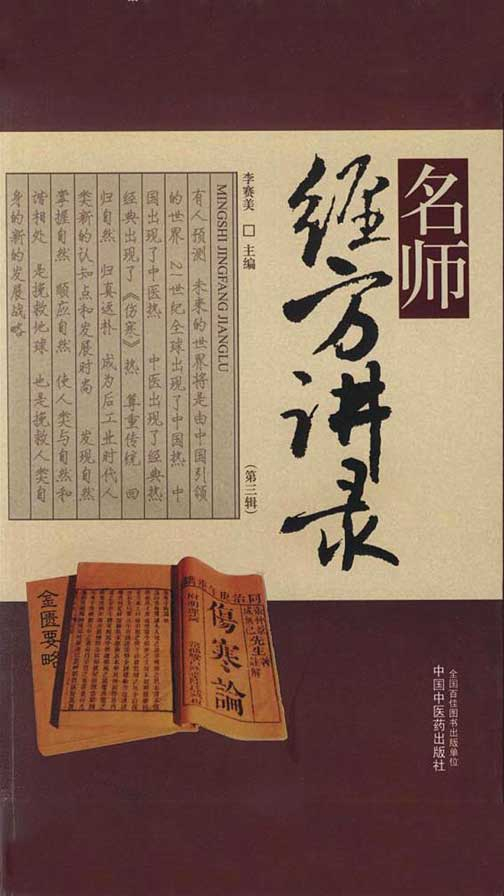 名师
经方讲录
李赛美 □ 主编
(第三辑)
MINGSHI JINGFANG JIANGLU
有人预测 未来的世界将是由中国引领
的世界 21世纪全球出现了中国热 中
国出现了中医热 中医出现了经典热
经典出现了《伤寒》热 尊重传统 回
归自然 归真返朴 成为后工业时代人
类新的认知点和发展时尚 发现自然
掌握自然 顺应自然 使人类与自然和
谐相处 是挽救地球 也是挽救人类自
身的新的发展战略
傷寒論
金匮要略
全国百佳图书出版单位
中国中医药出版社